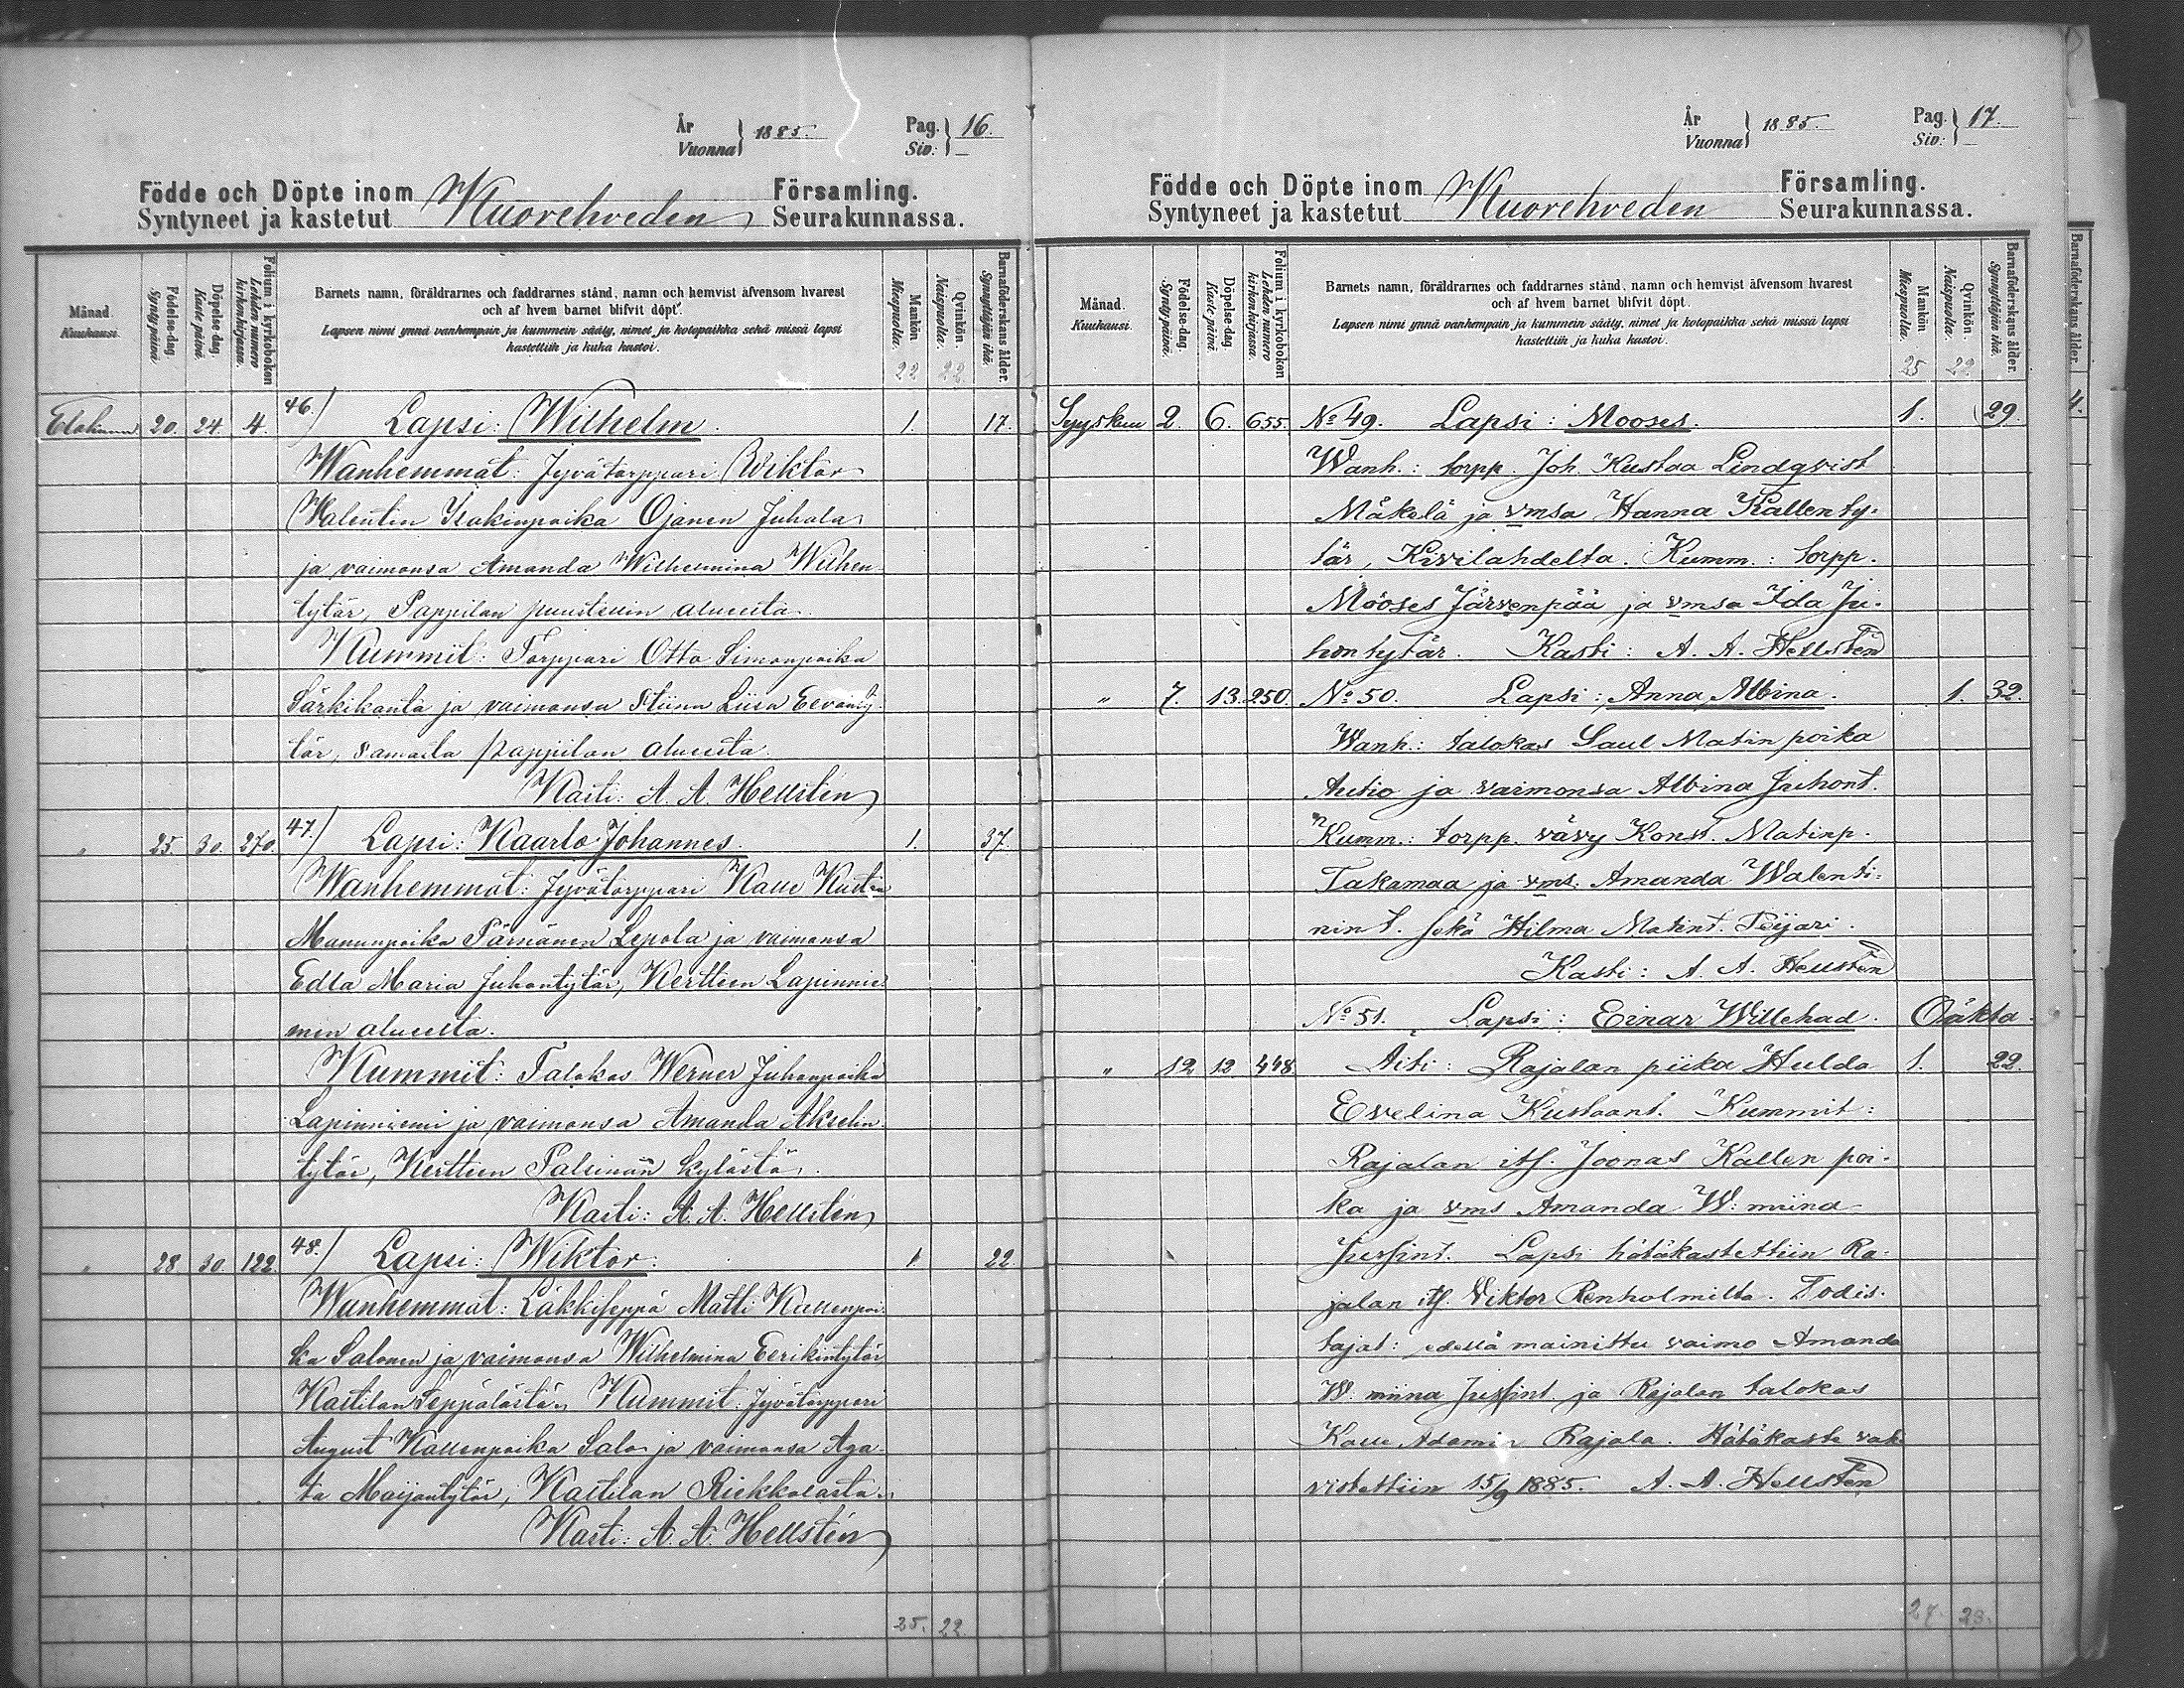 År
Vuonna } 1885. Pag.
Siv: } 16.
Födde och Döpte inom Kuorehveden Församling.
Syntyneet ja kastetut Seurakunnassa.
Månad.
Kuukausi.
Födelse-dag.
Synty-päivä.
Döpelse dag.
Kaste päivä.
Folium i kyrkoboken
Lehden numero
kirkonkirjassa.
Barnets namn, föräldrarnes och faddrarnes stånd, namn och hemvist äfvensom hvarest
och af hvem barnet blifvit döpt.
Lapsen nimi ynnä vanhempain ja kummein sääty, nimet ja kotopaikka sekä missä lapsi
kastettiin ja kuka kastoi.
Mankön
Miespuolia.
22.
Qvinkön.
Naispuolia.
22.
Barnaföderskans ålder.
Synnyttäjän ikä.
Elokuun 20. 24. 4. 46.) Lapsi: Wilhelm. 1. 17.
Wanhemmat: Jyvätorppari Wiktor
Walentin Isakinpoika Ojanen Juhola
ja vaimonsa Amanda Wilhelmina Wilhen
tytär, Pappilan puustellin alueelta.
Kummit: Torppari Otto Simonpoika
Särkikanta ja vaimonsa Stiina Liisa Eevanty
tär, samalta pappilan alueelta.
Kasti: A. A. Hellstén
" 25. 30. 270. 47.) Lapsi: Kaarlo Johannes. 1. 37.
Wanhemmat: Jyvätorppari Kalle Kustin
Manunpoika Pärnänen Lepola ja vaimonsa
Edla Maria Juhontytär, Kerttien Lapinnie
men alueelta.
Kummit: Talokas Werner Juhonpoika
Lapinniemi ja vaimonsa Amanda Akselin
tytär, Kerttien Palsinan kylästä.
Kasti: A. A. Hellstén
" 28 30. 122. 48.) Lapsi: Wiktor. 1 22
Wanhemmat: Läkkiseppä Matti Kallenpoi
ka Salonen ja vaimonsa Wilhelmina Eerikintytär
Kastilan Seppälästä. Kummit: Jyvätorppari
August Kallenpoika Salo ja vaimonsa Aga
ta Maijantytär, Kastilan Riekkolasta.
Kasti: A. A. Hellstén
25. 22.
År
Vuonna } 1885. Pag.
Siv: } 17.
Födde och Döpte inom Kuorehveden Församling.
Syntyneet ja kastetut Seurakunnassa.
Månad.
Kuukausi.
Födelse-dag.
Synty päivä.
Döpelse-dag.
Kaste päivä
Folium i kyrkoboken
Lehden numero
kirkonkirjassa.
Barnets namn, föräldrarnes och faddrarnes stånd, namn och hemvist äfvensom hvarest
och af hvem barnet blifvit döpt.
Lapsen nimi ynnä vanhempain ja kummein sääty, nimet ja kotopaikka sekä missä lapsi
kastettiin ja kuka kastoi.
Mankön
Miespuolia.
25
Qvinkön.
Naispuolia.
22.
Barnaföderskans ålder.
Synnyttäjän ikä.
Syyskuu 2. 6. 655. No 49. Lapsi: Mooses. 1. 29.
Wanh.: torpp. Joh. Kustaa Lindqvist
Mäkelä ja vmsa Hanna Kallenty-
tär, Kivilahdelta. Kumm.: torpp.
Mooses Järvenpää ja vmsa Ida Ju-
hontytär. Kasti: A. A. Hellstén
" 7. 13. 250. No 50. Lapsi: Anna Albina. 1. 32.
Wanh.: talokas Saul Matinpoika
Autio ja vaimonsa Albina Juhont.
Kumm.: torpp. vävy Konst. Matinp.
Takamaa ja vms. Amanda Walenti-
nint. sekä Hilma Matint. Peijari.
Kasti: A. A. Hellstén
No 51. Lapsi: Einar Willehad. Oäkta.
" 12 12 448 Äiti: Rajalan piika Hulda 1. 22.
Evelina Kustaant. Kummit:
Rajalan its. Joonas Kallen poi-
ka ja vms Amanda W. miina
Jussint. Lapsi hätäkastettiin Ra-
jalan its. Viktor Renholmilta. Todis-
tajat: edellä mainittu vaimo Amanda
W. miina Jussint. ja Rajalan talokas
Kalle Adamin Rajala. Hätäkaste vah-
vistettiin 15/9 1885. A. A. Hellstén
27. 23.
Barnaföderskans ålder.
4.